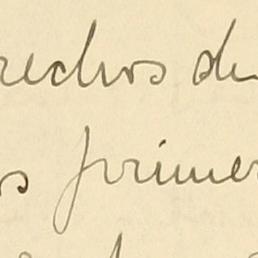 rechos de
os primer